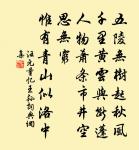 五陵無樹起秋風
千里黃雲與斷蓬
人物蕭條市井空
思無窮
惟有青山似洛中
汪元量憶王孫詞典網
集